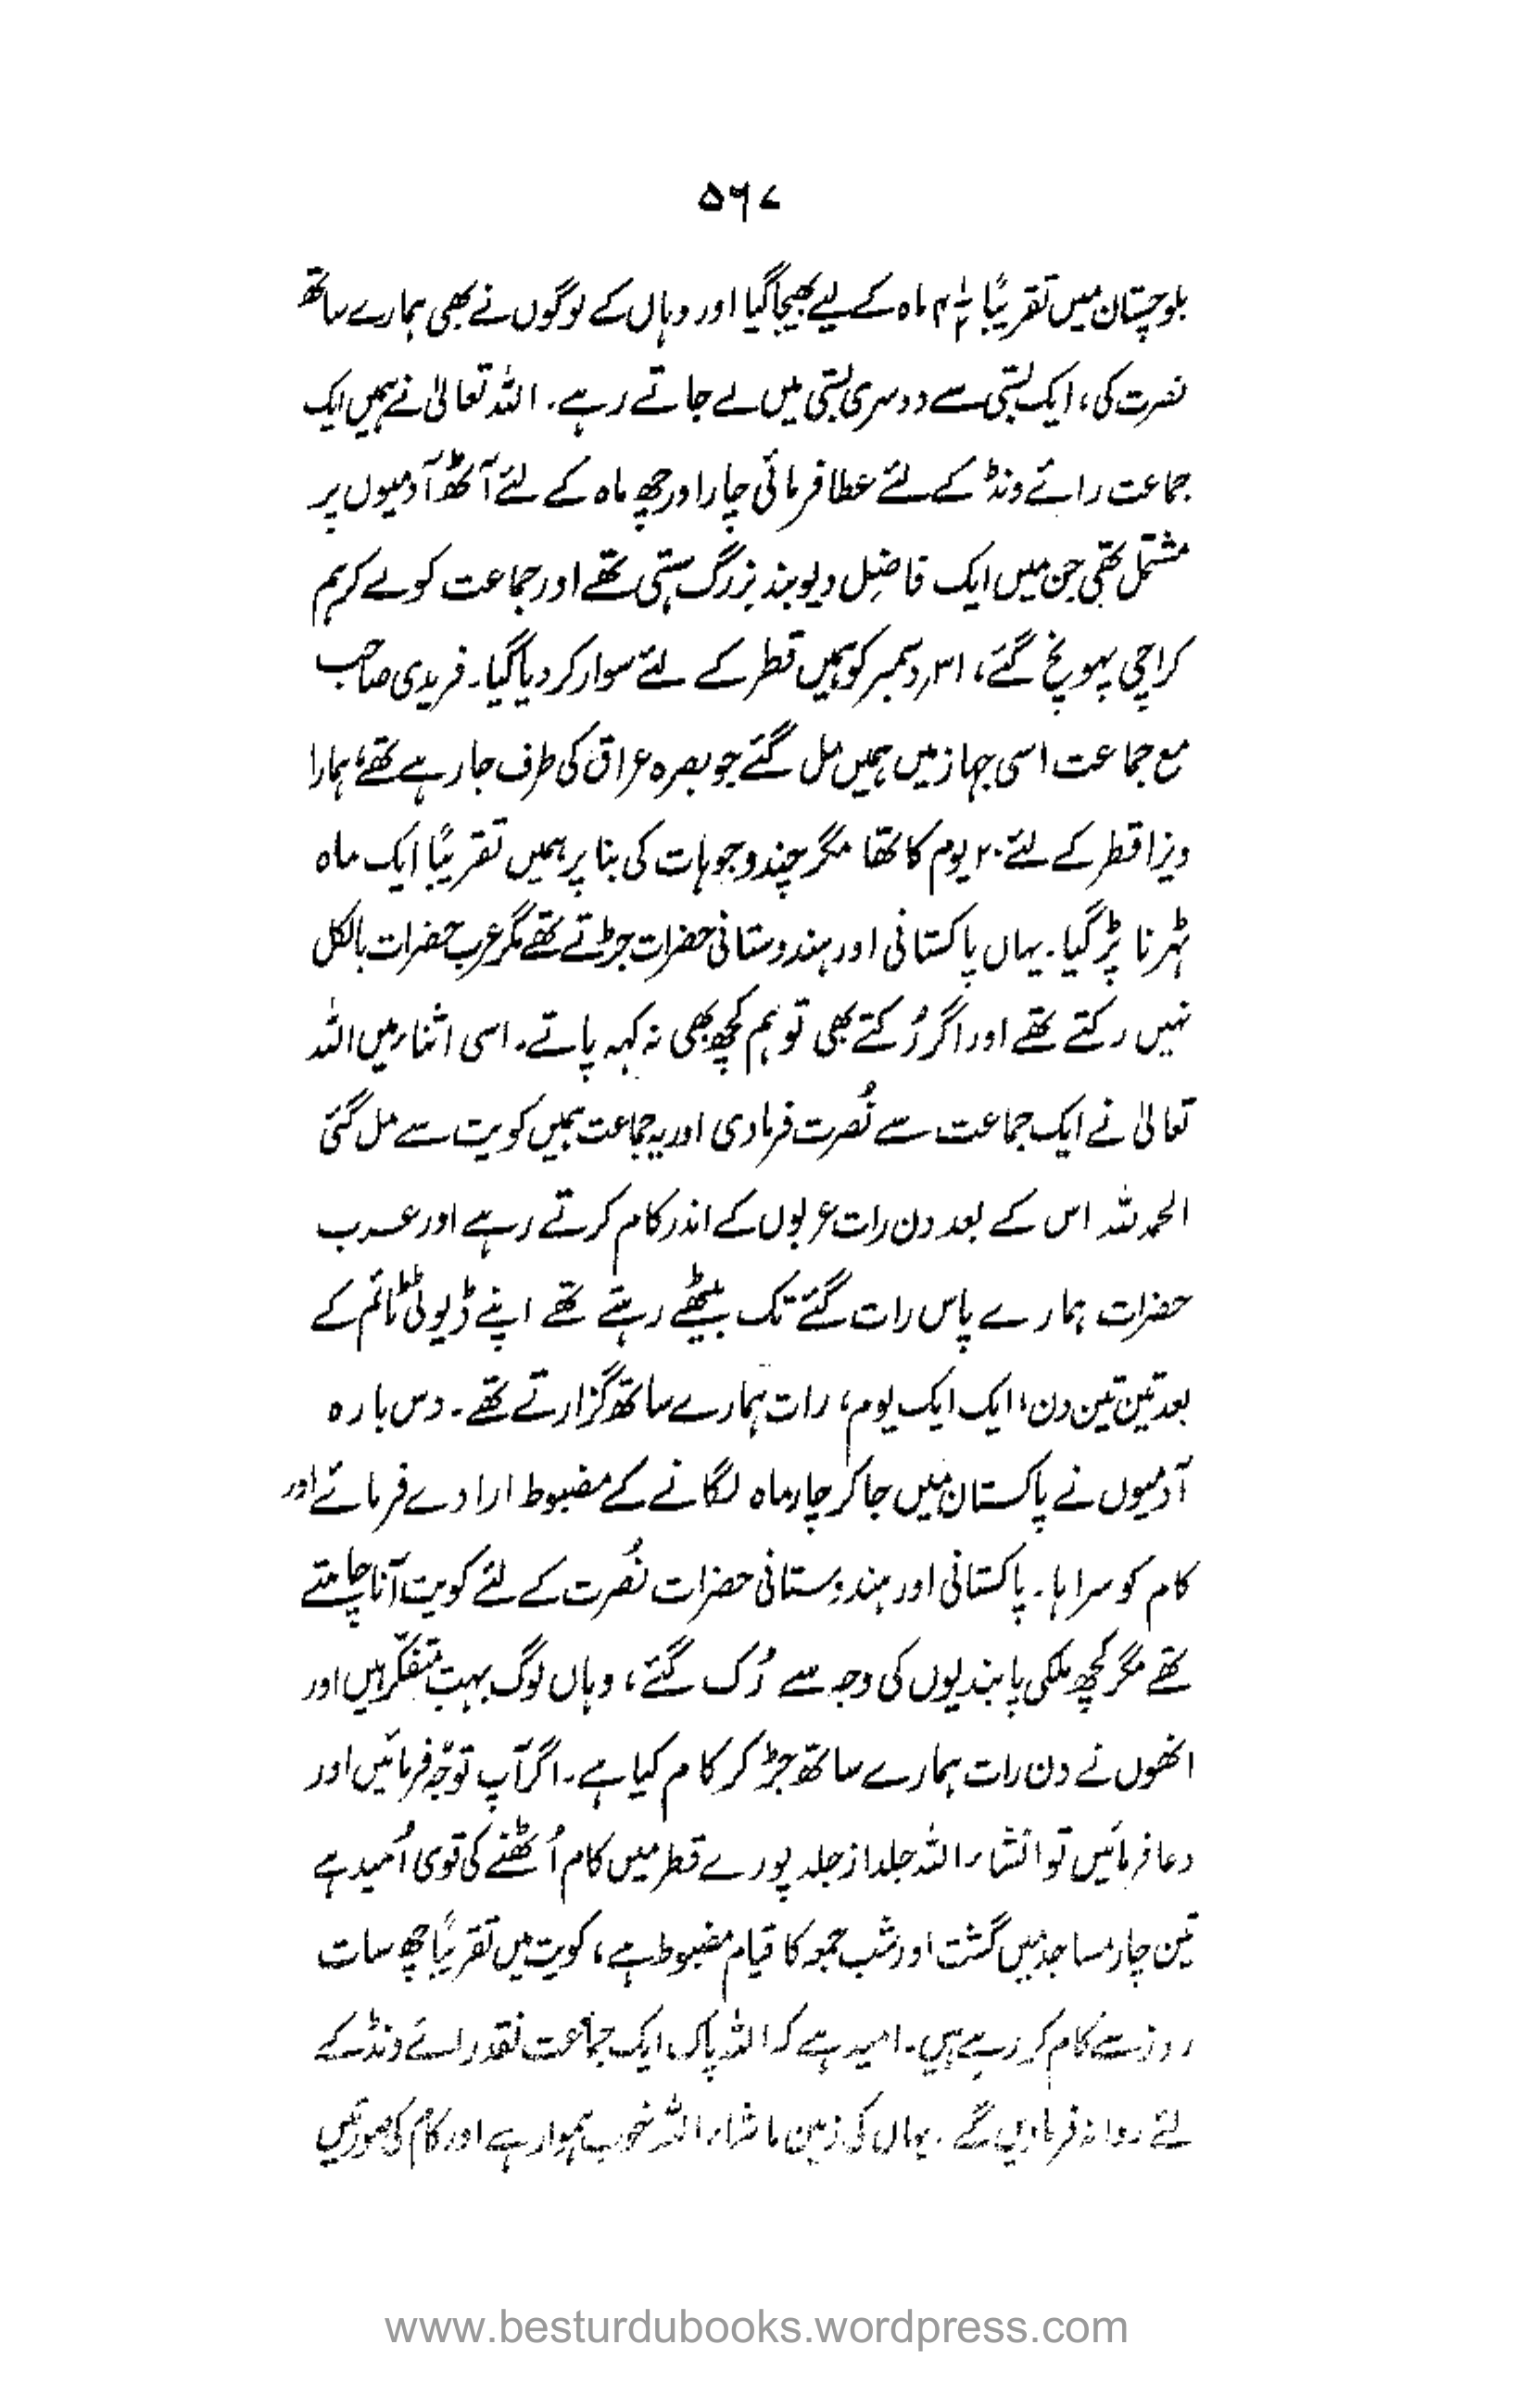 ۵۶۷
بلوچستان میں تقریباً ۲½ ماہ کے لیے بھیجا گیا اور وہاں کے لوگوں نے بھی ہمارے ساتھ
نصرت کی، ایک بستی سے دوسری بستی میں لے جاتے رہے۔ اللہ تعالیٰ نے ہمیں ایک
جماعت رائے ونڈ کے لئے عطا فرمائی چار اور چھ ماہ کے لئے آٹھ آدمیوں پر
مشتمل تھی جن میں ایک فاضِل دیوبند بزرگ ہستی تھے اور جماعت کو لے کر ہم
کراچی پہونچ گئے، ۳۱ دسمبر کو ہمیں قطر کے لئے سوار کر دیا گیا۔ فریدی صاحب
مع جماعت اسی جہاز میں ہمیں مل گئے جو بصرہ عراق کی طرف جا رہے تھے، ہمارا
ویزا قطر کے لئے ۲۰ یوم کا تھا مگر چند وجوہات کی بنا پر ہمیں تقریباً ایک ماہ
ٹہرنا پڑ گیا۔ یہاں پاکستانی اور ہندوستانی حضرات جڑتے تھے مگر عرب حضرات بالکل
نہیں رکتے تھے اور اگر رُکتے بھی تو ہم کچھ بھی نہ کہہ پاتے۔ اسی اثناء میں اللہ
تعالیٰ نے ایک جماعت سے نُصرت فرما دی اور یہ جماعت ہمیں کویت سے مل گئی
الحمد للہ اس کے بعد دن رات عربوں کے اندر کام کرتے رہے اور عرب
حضرات ہمارے پاس رات گئے تک بیٹھے رہتے تھے اپنے ڈیوٹی ٹائم کے
بعد تین تین دن، ایک ایک یوم، رات ہمارے ساتھ گزارتے تھے۔ دس بارہ
آدمیوں نے پاکستان میں جا کر چار ماہ لگانے کے مضبوط ارادے فرمائے اور
کام کو سراہا۔ پاکستانی اور ہندوستانی حضرات نُصرت کے لئے کویت آنا چاہتے
تھے مگر کچھ ملکی پابندیوں کی وجہ سے رُک گئے، وہاں لوگ بہت متفکّر ہیں اور
انھوں نے دن رات ہمارے ساتھ جڑ کر کام کیا ہے۔ اگر آپ توجّہ فرمائیں اور
دعا فرمائیں تو انشاء اللہ جلد از جلد پورے قطر میں کام اُٹھنے کی قوی اُمید ہے
تین چار مساجد میں گشت اور شب جمعہ کا قیام مضبوط ہے، کویت میں تقریباً چھ سات
روز سے کام کر رہے ہیں۔ امید ہے کہ اللہ پاک ایک جماعت نقد رائے ونڈ کے
لئے روانہ فرما دیں گے۔ یہاں کی زمین ماشاء اللہ خوب ہموار ہے اور کام کی صورتیں
www.besturdubooks.wordpress.com